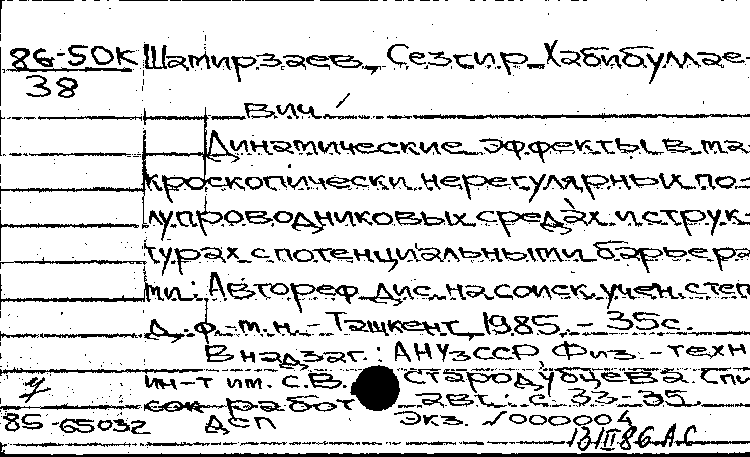 86-5OK Шамирзаев, Сезгир Хабибуллае-
38
вич
Динамические эффекты в ма-
кроскопически нерегулярных по-
лупроводниковых средах и струк-
турах с потенциальными барьера-
ми: Автореф дис. на соиск. учен. степ
д. ф.-м. н. - Ташкент, 1985. - 35с.
В надзаг.: АН УзССР, Физ.-техн
ин-т им. С.В. Стародубцева. Спи-
сок работ авт.: с. 33-35.
85-65032 ДСП Экз. №000004
13/III 86 А.С